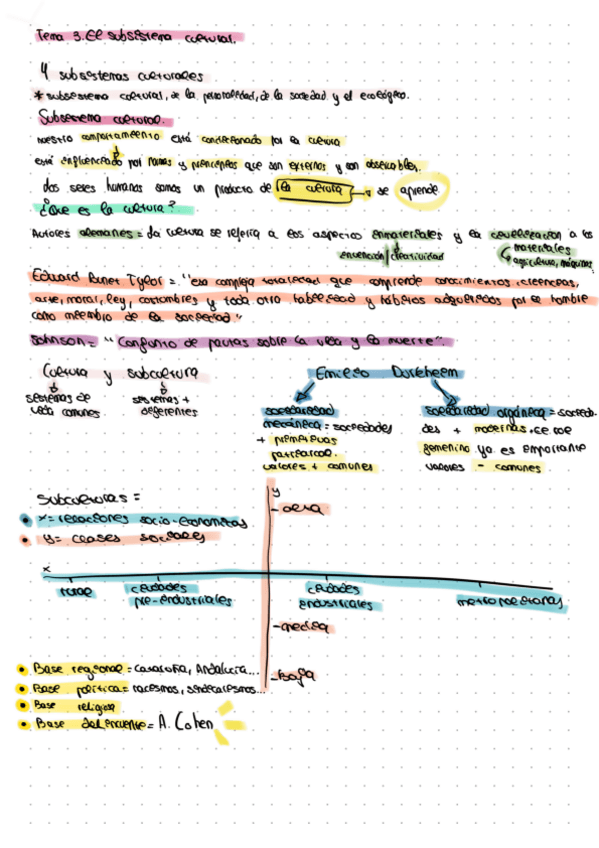 Tema 3. El subsistema cultural.
4 subsistemas culturales
* subsistema cultural, de la personalidad, de la sociedad y el ecológico.
Subsistema cultural.
nuestro comportamiento está condicionado por la cultura
está influenciado por normas y principios que son externos y son observables.
Los seres humanos somos un producto de la cultura → se aprende
¿Que es la cultura?
Autores alemanes = la cultura se refería a los aspectos inmateriales y la civilización a los
materiales
invención/creatividad
agricultura, máquinas
Eduard Burnet Tylor = "esa compleja totalidad que comprende conocimientos, creencias,
arte, moral, ley, costumbres y toda otra habilidad y hábitos adquiridos por el hombre
como miembro de la sociedad"
Johnson = "Conjunto de pautas sobre la vida y la muerte".
Cultura y subcultura
sistemas de
vida comunes.
sistemas +
diferentes
Emileo Durkheim
solidaridad
mecánica = sociedades
+ primitivas
patriarcal.
valores + comunes
solidaridad orgánica = socieda-
des + modernas. el rol
femenino ya es importante
valores - comunes
Subculturas =
• x = relaciones socio-economicas
• y = clases sociales
y
- alta
x
rural
ciudades
pre-industriales
ciudades
industriales
metropolitanas
- media
- Baja
• Base regional = Cataluña, Andalucía...
• Base política = racismos, sindicalismos...
• Base religiosa
• Base delincuente = A. Cohen